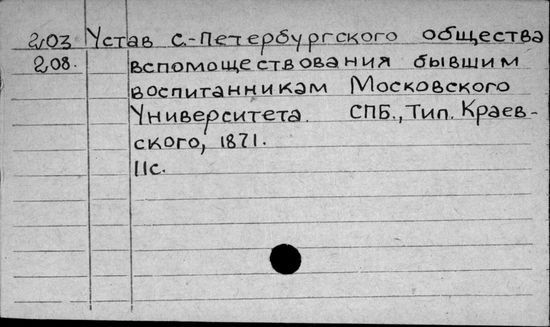 2103 Устав С.-Петербургского общества
208. вспомоществования бывшим
воспитанникам Московского
Университета. СПБ., Тип. Краев-
ского, 1871.
11с.